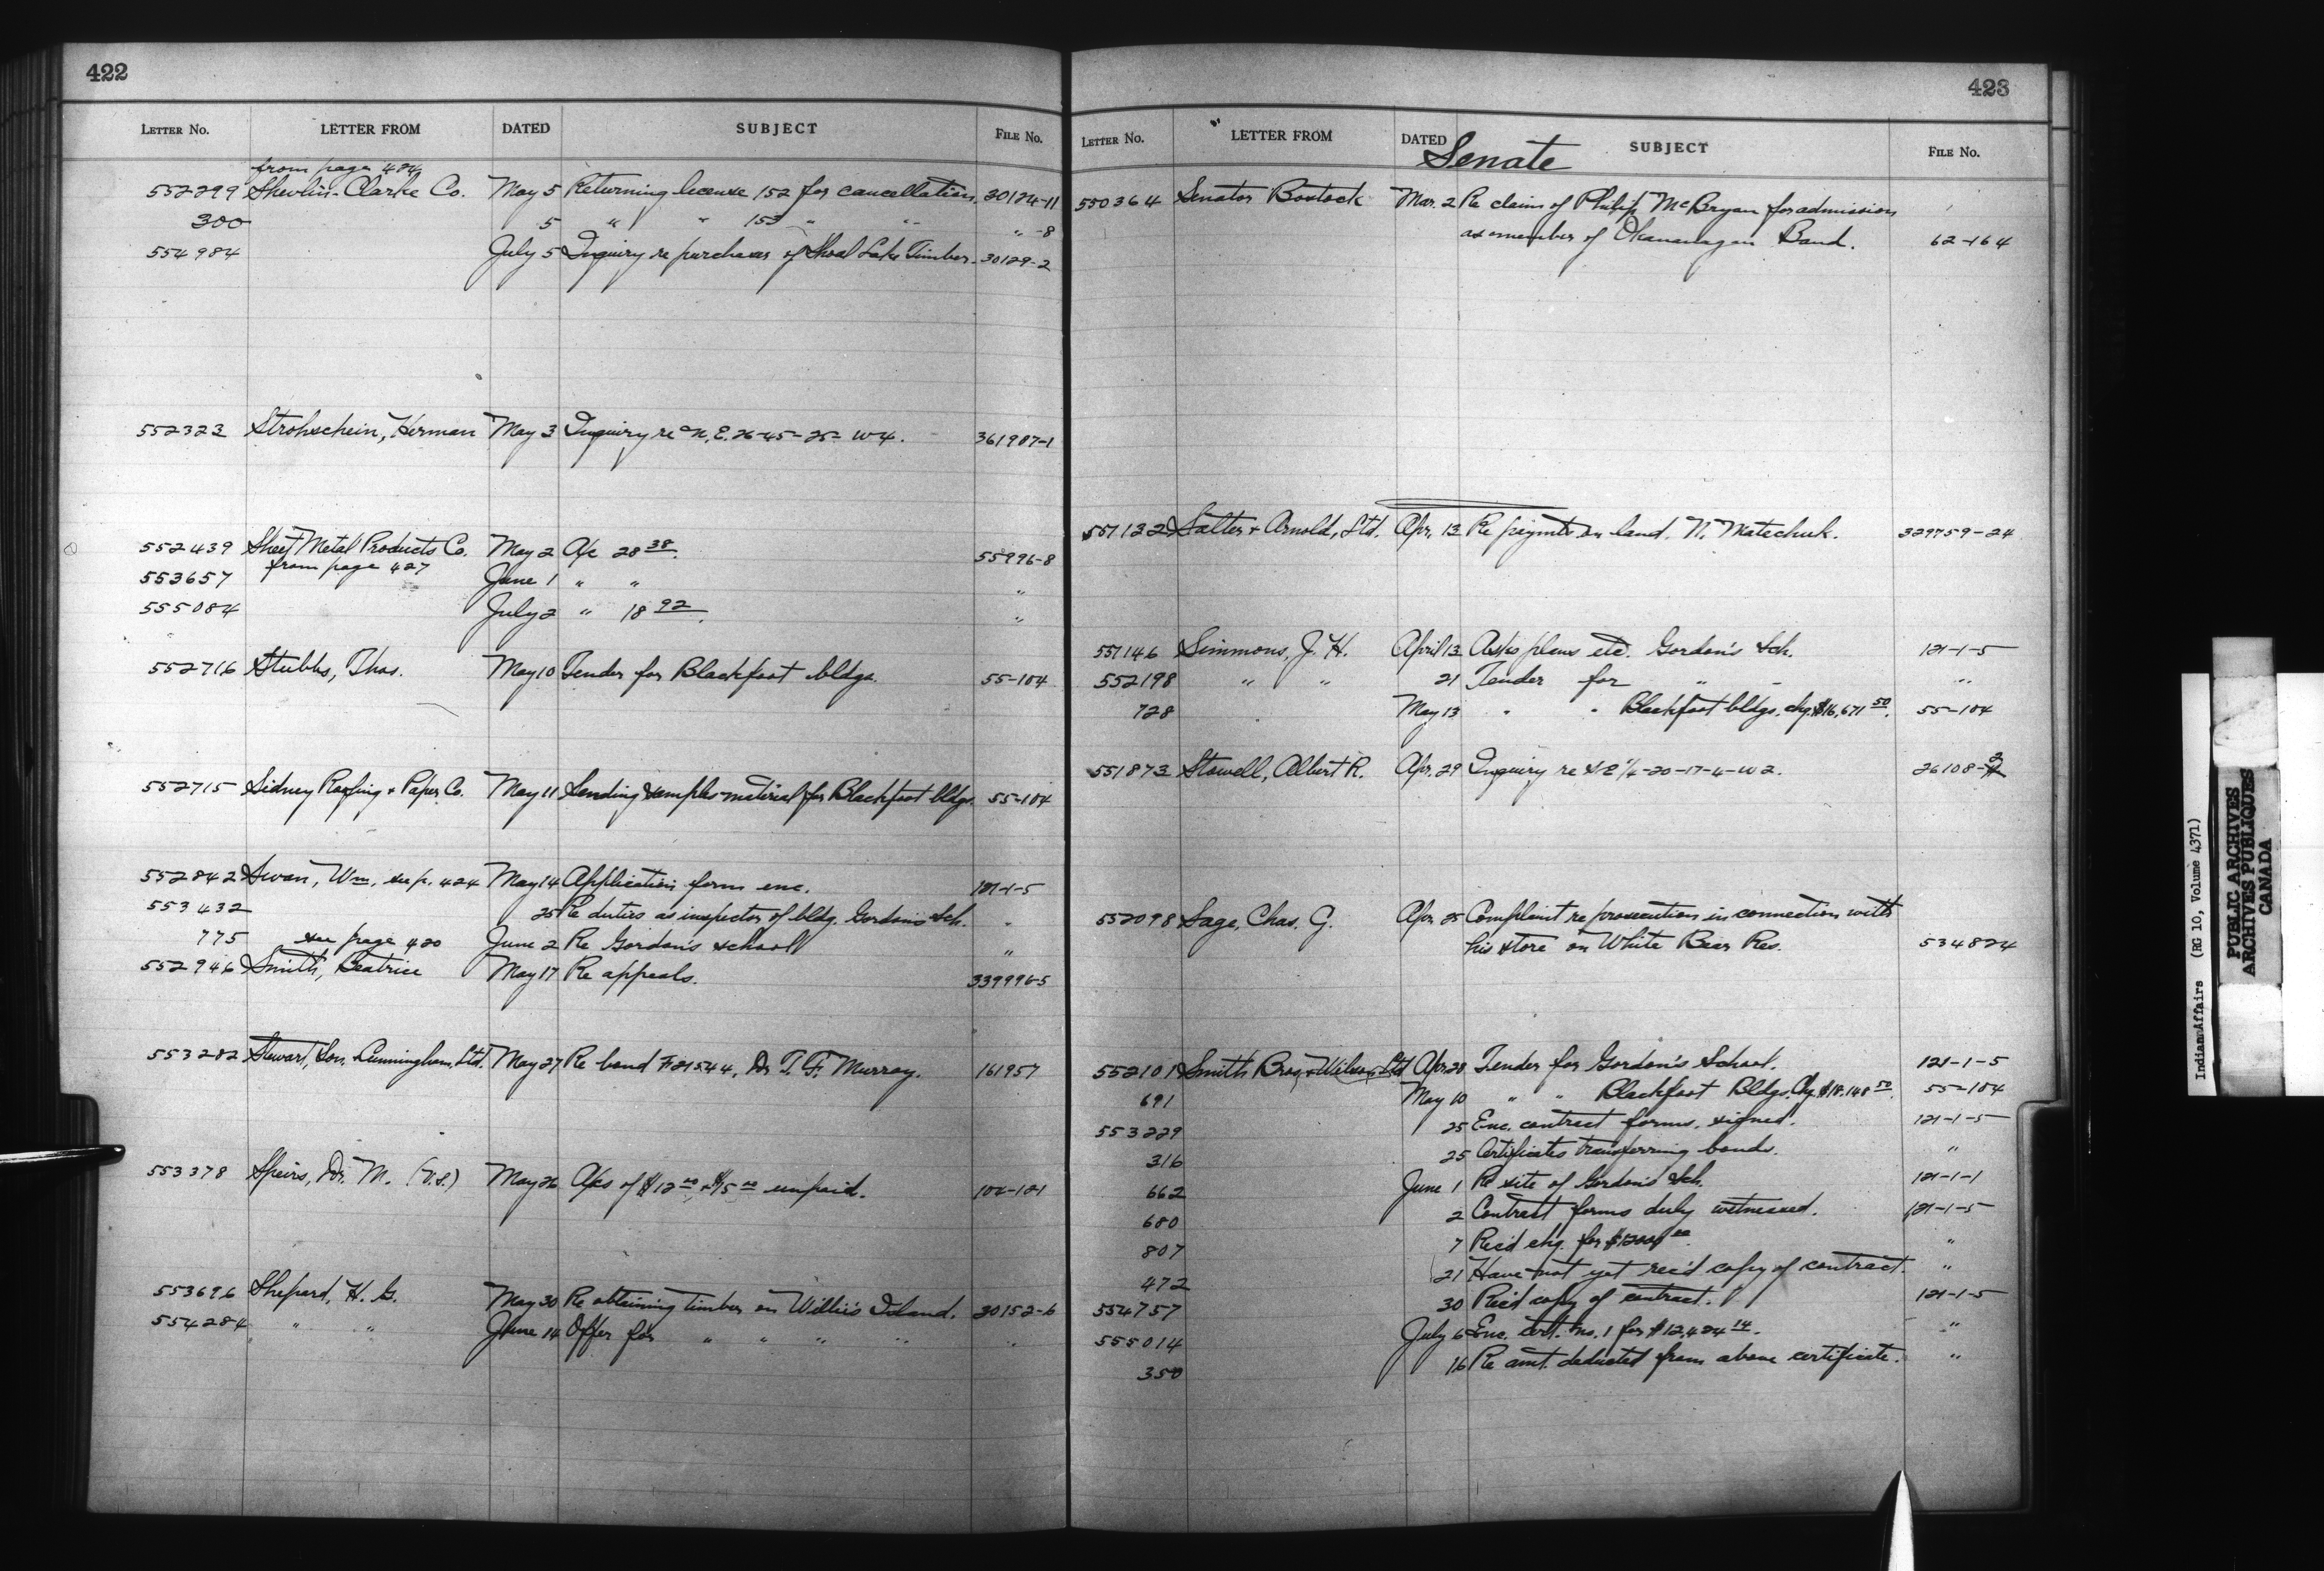 422
LETTER No. LETTER FROM DATED SUBJECT FILE No.
from page 424
552299 Shevlin-Clarke Co. May 5 Returning license 152 for cancellation. 30124-11
300 5 " " 153 " " " -8
554984 July 5 Inquiry re purchases of Shoal Lake Timber. 30129-2
552323 Strohschein, Herman May 3 Inquiry re N.E. 26-45-25-W4. 361987-1
552439 Sheet Metal Products Co. May 2 A/c 28 38. 55996-8
from page 427
553657 June 1 " " "
555084 July 2 " 18 92. "
552716 Stubbs, Thos. May 10 Tender for Blackfoot bldgs. 55-104
552715 Sidney Roofing + Paper Co. May 11 Sending samples material for Blackfoot bldgs. 55-104
552842 Swan, Wm. see p. 424 May 14 Application form enc. 121-1-5
553432 25 Re duties as inspector of bldg. Gordon's Sch. "
775 see page 420 June 2 Re Gordon's school "
552946 Smith, Beatrice May 17 Re appeals. 339996-5
553282 Stewart, Son, Cunningham, Ltd. May 27 Re bond F21544, Dr. T. F. Murray. 161957
553378 Speirs, Dr. M. (V.S.) May 26 A/cs of $12 00 + $15 00 unpaid. 104-121
553696 Shepard, H. G. May 30 Re obtaining timber on Willie's Island. 30152-6
554284 " " June 14 Offer for " " " " "
423
LETTER No. LETTER FROM DATED SUBJECT FILE No.
Senate
550364 Senator Bostock Mar. 2 Re claim of Philip McBryan for admission
as member of Okananagan Band. 62-164
551132 Salter + Arnold, Ltd. Apr. 13 Re paymts on land. N. Matechuk. 329759-24
551146 Simmons, J. H. April 13 Asks plans etc. Gordon's Sch. 121-1-5
552198 " " 21 Tender for " " "
728 May 13 " " Blackfoot bldgs. chq. $16,671 50. 55-104
551873 Stowell, Albert R. Apr. 29 Inquiry re S.E 1/4-20-17-4-W2. 26108-2
552098 Sage, Chas. G. Apr. 25 Complaint re prosecution in connection with
his store on White Bear Res. 534824
552101 Smith Bros. + Wilson, Ltd Apr. 28 Tender for Gordon's School. 121-1-5
691 May 10 " " Blackfoot Bldgs. Chq. $18,148 50. 55-104
553229 25 Enc. contract forms, signed. 121-1-5
316 25 Certificates transferring bonds. "
662 June 1 Re site of Gordon's Sch. 121-1-1
680 2 Contract forms duly witnessed. 121-1-5
807 7 Rec'd chq. for "
472 21 Have not yet rec'd copy of contract. "
554757 30 Rec'd copy of contract. 121-1-5
555014 July 6 Enc. cert. no. 1 for $12,424 14. "
350 16 Re amt. deducted from above certificate. "
Indian Affairs (RG 10, Volume 4371)
PUBLIC ARCHIVES
ARCHIVES PUBLIQUES
CANADA